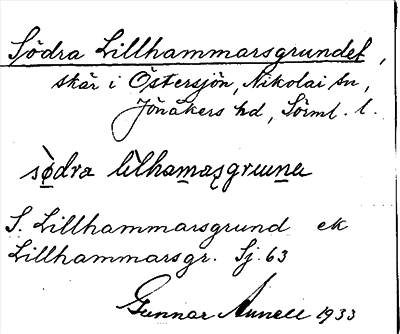 Södra Lillhammarsgrundet,
skär i Östersjön, Nikolai sn,
Jönåkers hd, Sörml. l.
sødra lilhamasgruuna
S. Lillhammarsgrund ek
Lillhammarsgr. Sj. 63
Gunnar Linnell 1933